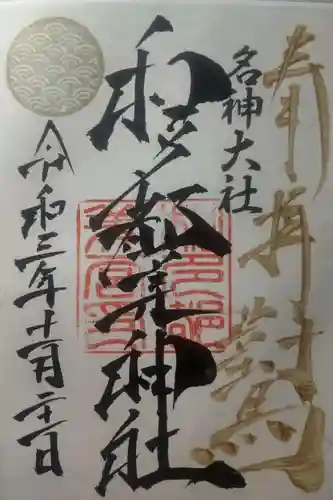 奉拝 對馬
名神大社
和多都美神社
令和三年十一月二十一日